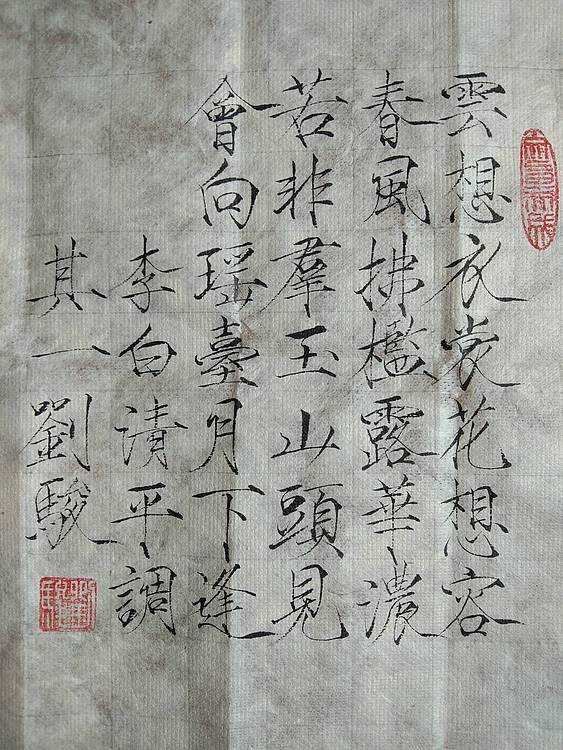 雲想衣裳花想容
春風拂檻露華濃
若非羣玉山頭見
會向瑶臺月下逢
李白清平調
其一劉駿